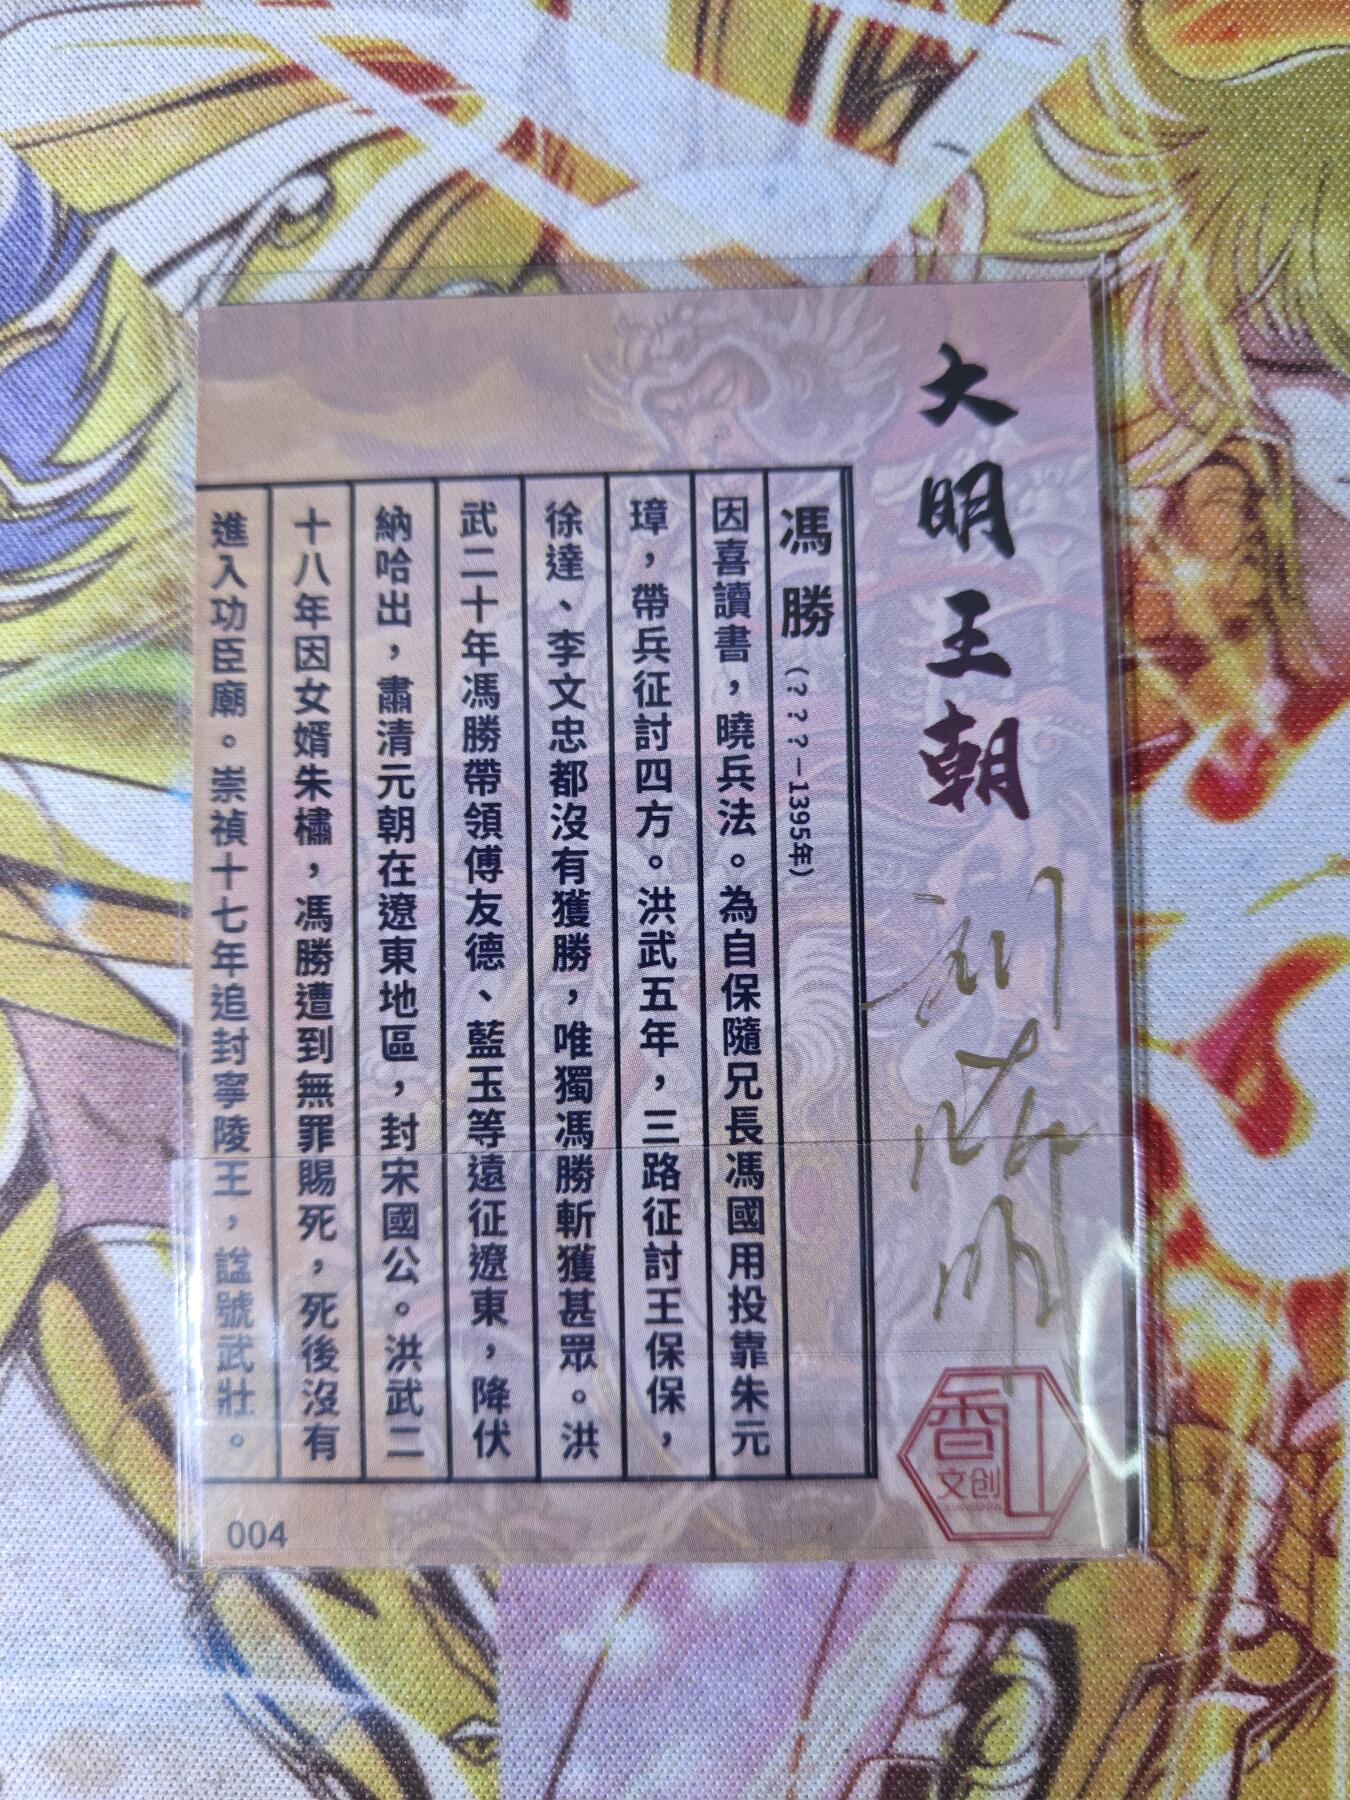 大明王朝
馮勝（？？？—1395年）
因喜讀書，曉兵法。為自保隨兄長馮國用投靠朱元
璋，帶兵征討四方。洪武五年，三路征討王保保，
徐達、李文忠都沒有獲勝，唯獨馮勝斬獲甚眾。洪
武二十年馮勝帶領傅友德、藍玉等遠征遼東，降伏
納哈出，肅清元朝在遼東地區，封宋國公。洪武二
十八年因女婿朱橚，馮勝遭到無罪賜死，死後沒有
進入功臣廟。崇禎十七年追封寧陵王，謚號武壯。
香山
文创
004